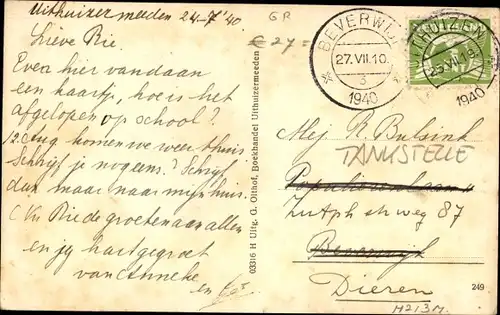 Uithuizermeeden 24-7'40
Lieve Rie.
Even hier vandaan
een kaartje, hoe is het
afgelopen op school?
12 Aug komen we weer thuis.
Schrijf je nog eens? Schrijf
dan maar naar mijn huis.
de groeten aan allen
en jij hartgegroet
van Anneke
en
GR
€ 27=
03316 H Uitg. G. Olthof, Boekhandel Uithuizermeeden
BEVERWIJK
27.VII.10.
3
1940
UITHUIZEN
25.VII.19
1940
Mej. R. Bulsink
TANKSTELLE
Populierenlaan
Zutph str weg 87
Beverwijk
Dieren
249
M213M.